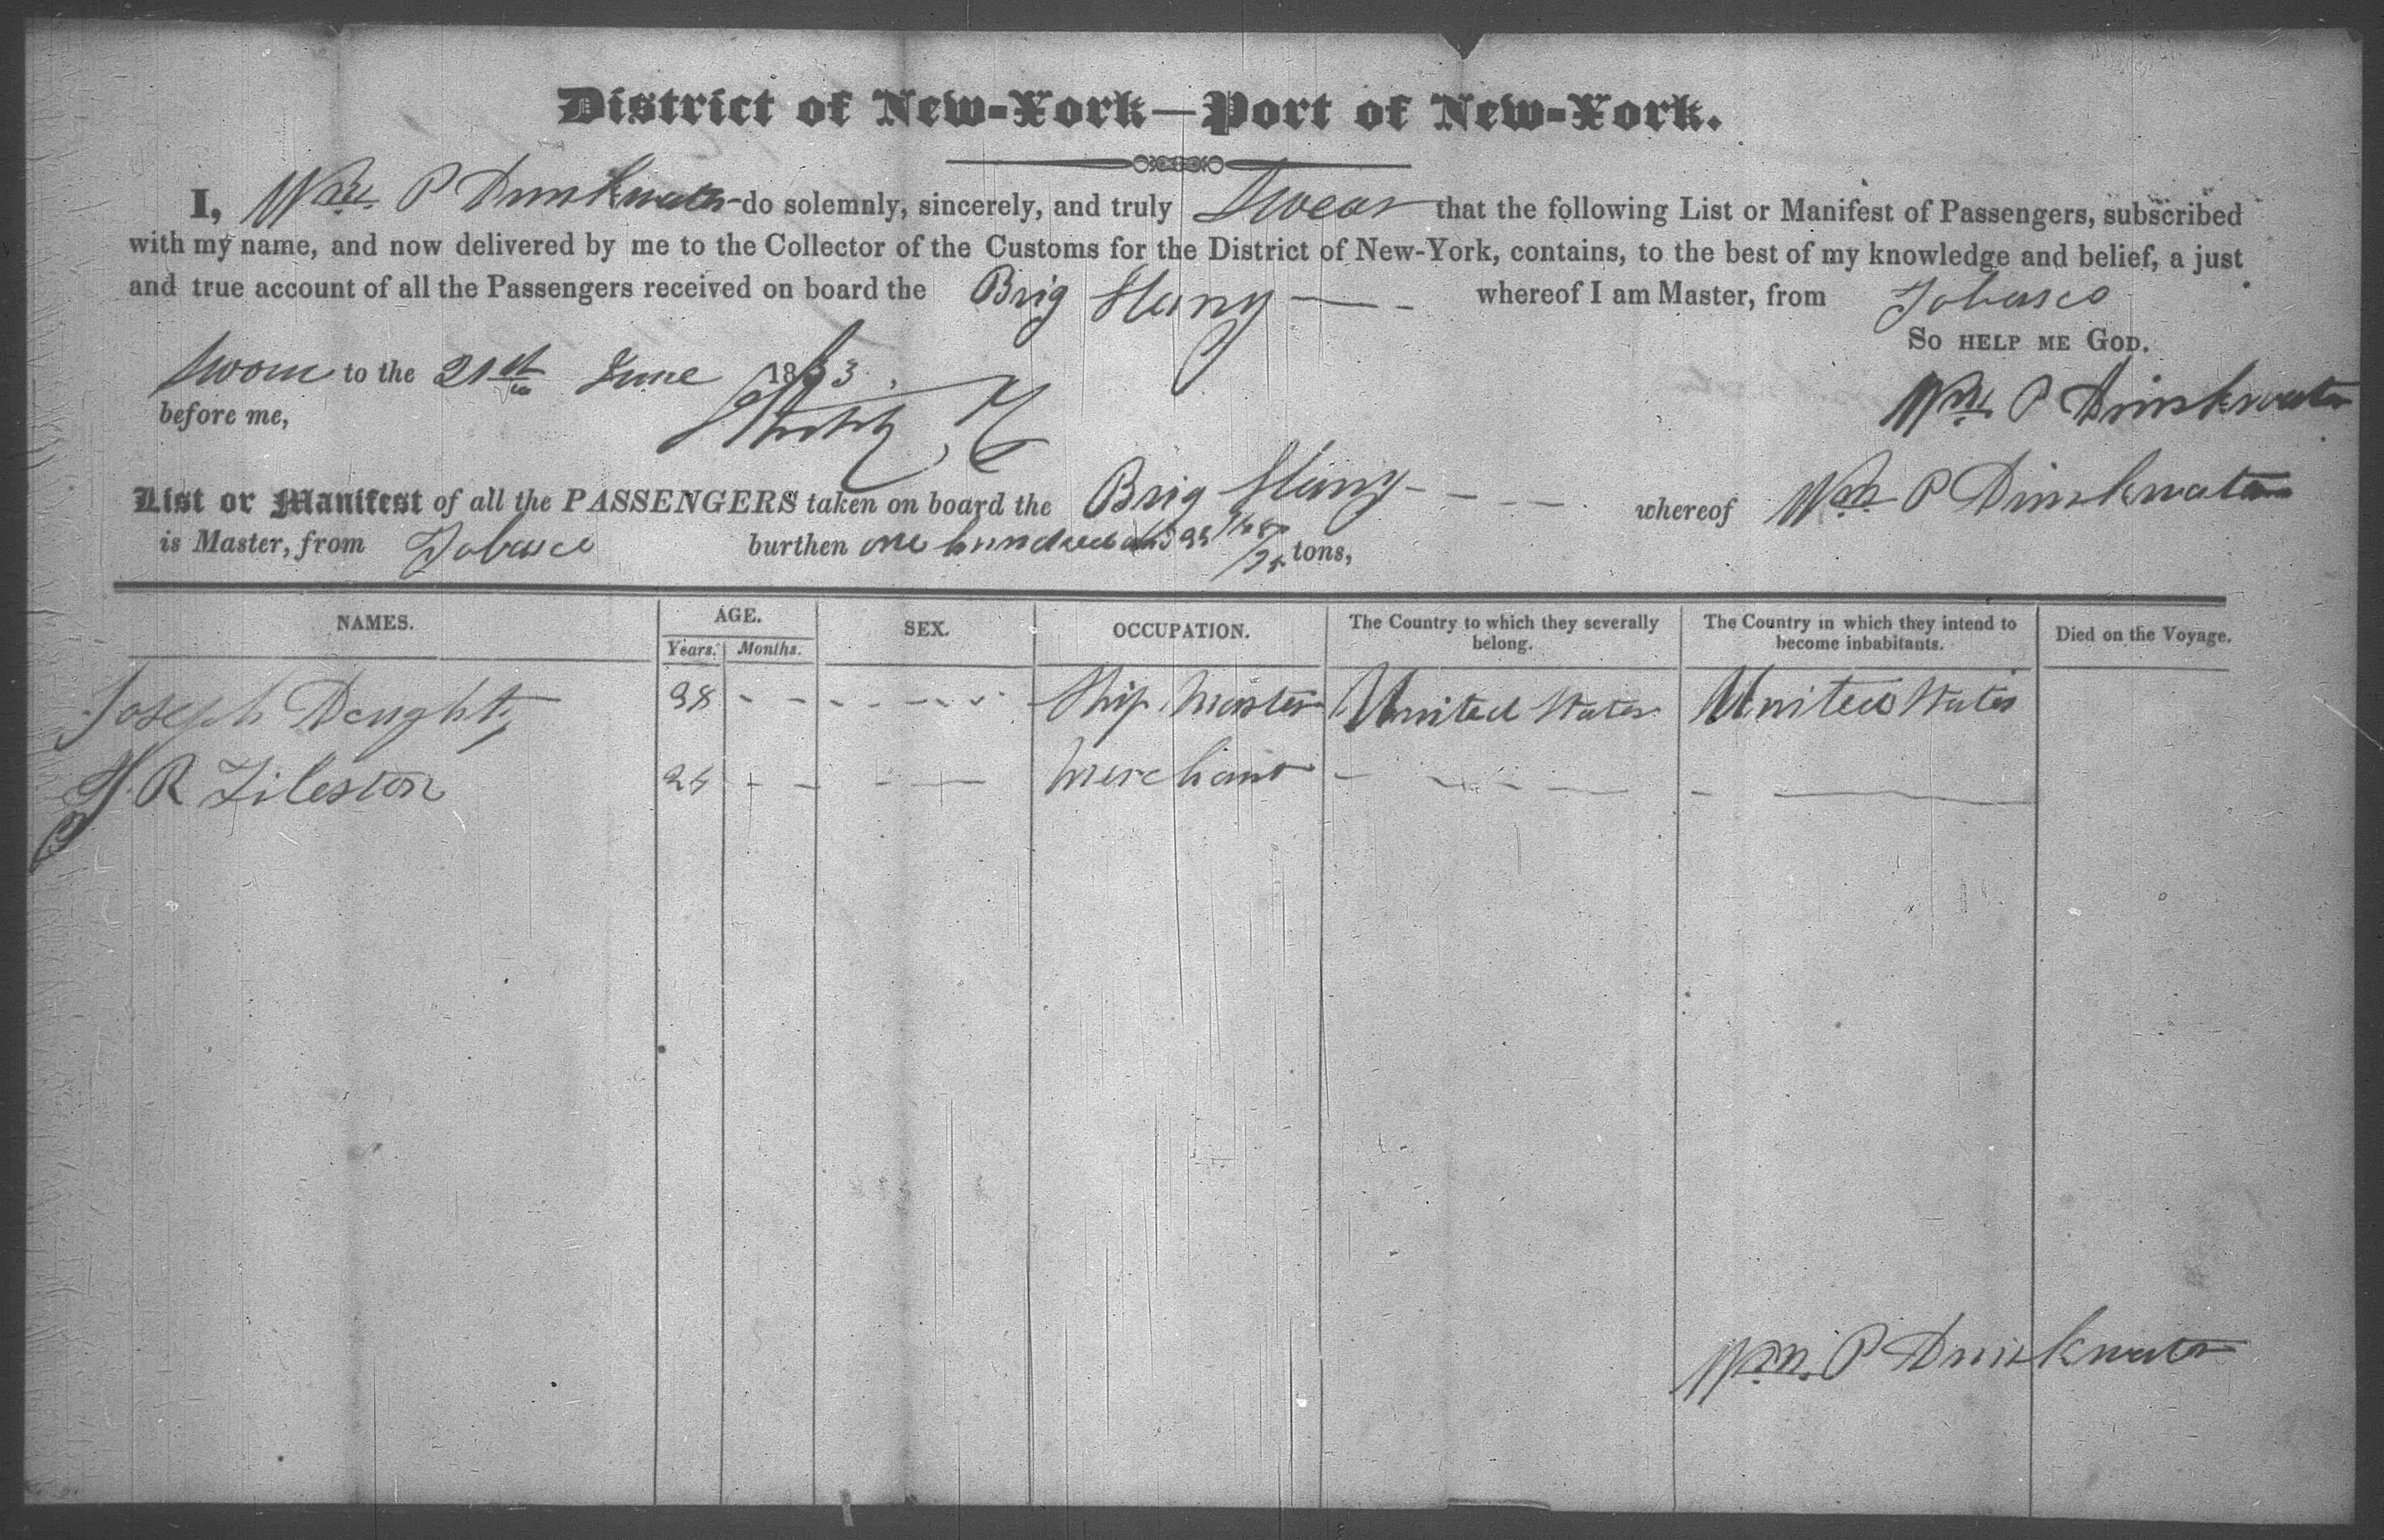 District of New-York—Port of New-York.
I, Wm. P Drinkwater do solemnly, sincerely, and truly Swear that the following List or Manifest of Passengers, subscribed
with my name, and now delivered by me to the Collector of the Customs for the District of New-York, contains, to the best of my knowledge and belief, a just
and true account of all the Passengers received on board the Brig whereof I am Master, from Tobasco
So HELP ME GOD.
Sworn to the 21st June 1833
before me,
Wm. P Drinkwater
List or Manifest of all the PASSENGERS taken on board the Brig whereof Wm P Drinkwater
is Master, from Tobasco burthen one hundred tons,
NAMES. AGE. SEX. OCCUPATION. The Country to which they severally belong. The Country in which they intend to become inhabitants. Died on the Voyage.
Years. Months.
Joseph Doughty 38 Ship Master United States United States
R Tileston Merchant
Wm. P Drinkwater